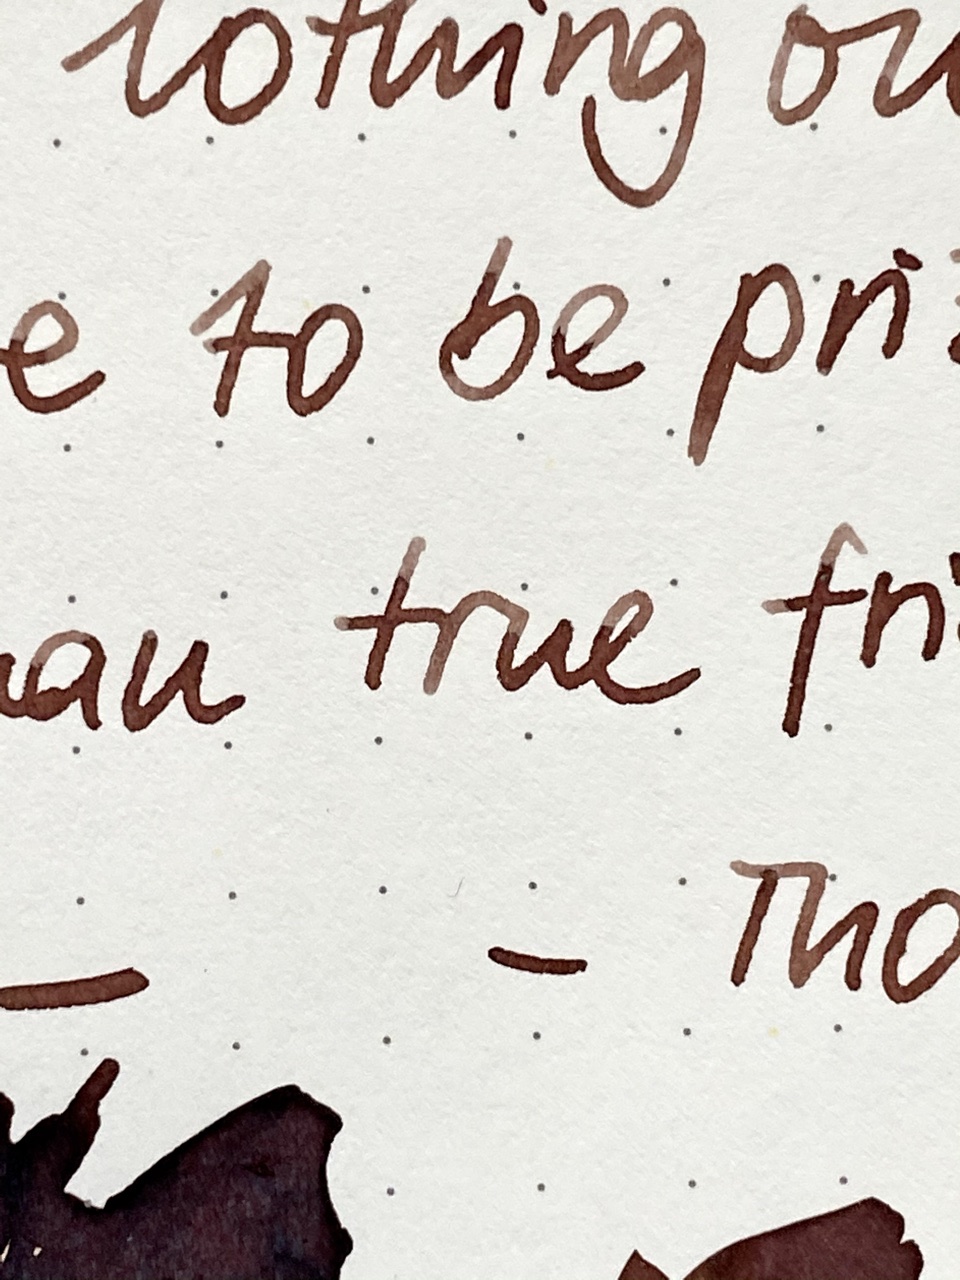 nothing on
e to be priz
han true frie
— Tho